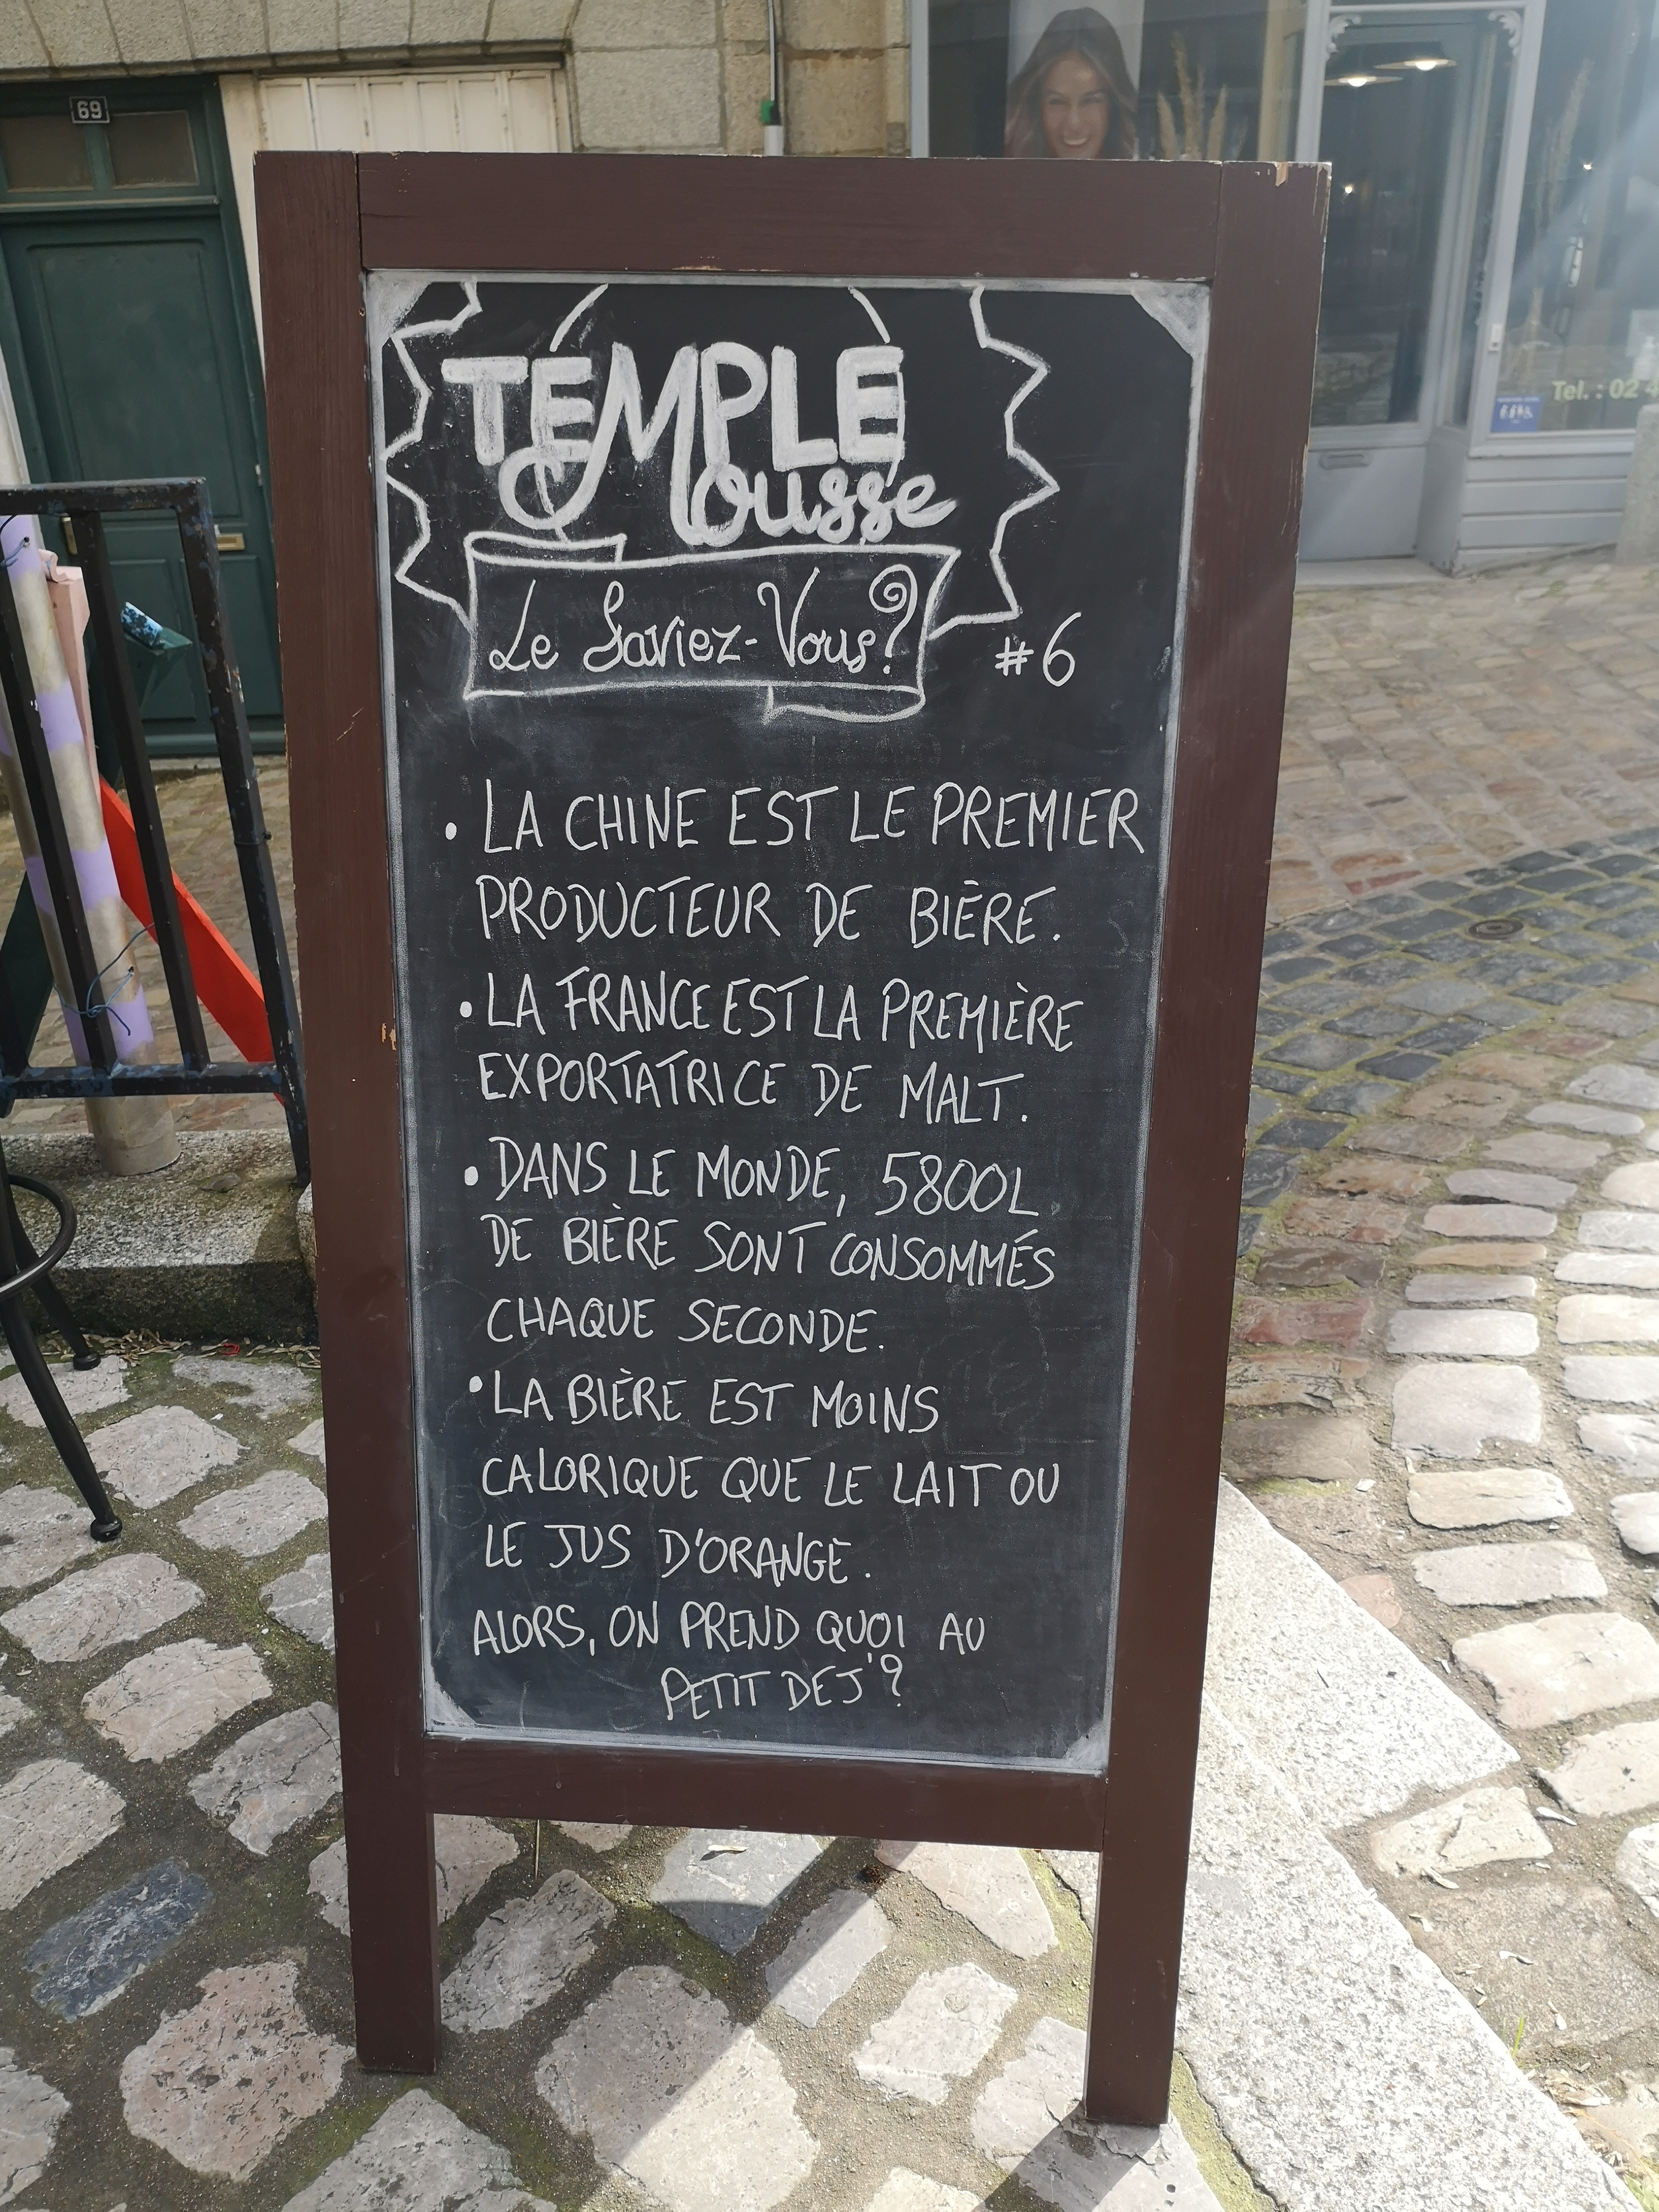 69
TEMPLE
Mousse
Le Saviez-Vous?
#6
• LA CHINE EST LE PREMIER
PRODUCTEUR DE BIÈRE.
• LA FRANCE EST LA PREMIÈRE
EXPORTATRICE DE MALT.
• DANS LE MONDE, 5800L
DE BIÈRE SONT CONSOMMÉS
CHAQUE SECONDE.
• LA BIÈRE EST MOINS
CALORIQUE QUE LE LAIT OU
LE JUS D'ORANGE.
ALORS, ON PREND QUOI AU
PETIT DEJ'?
Tel. : 02 4